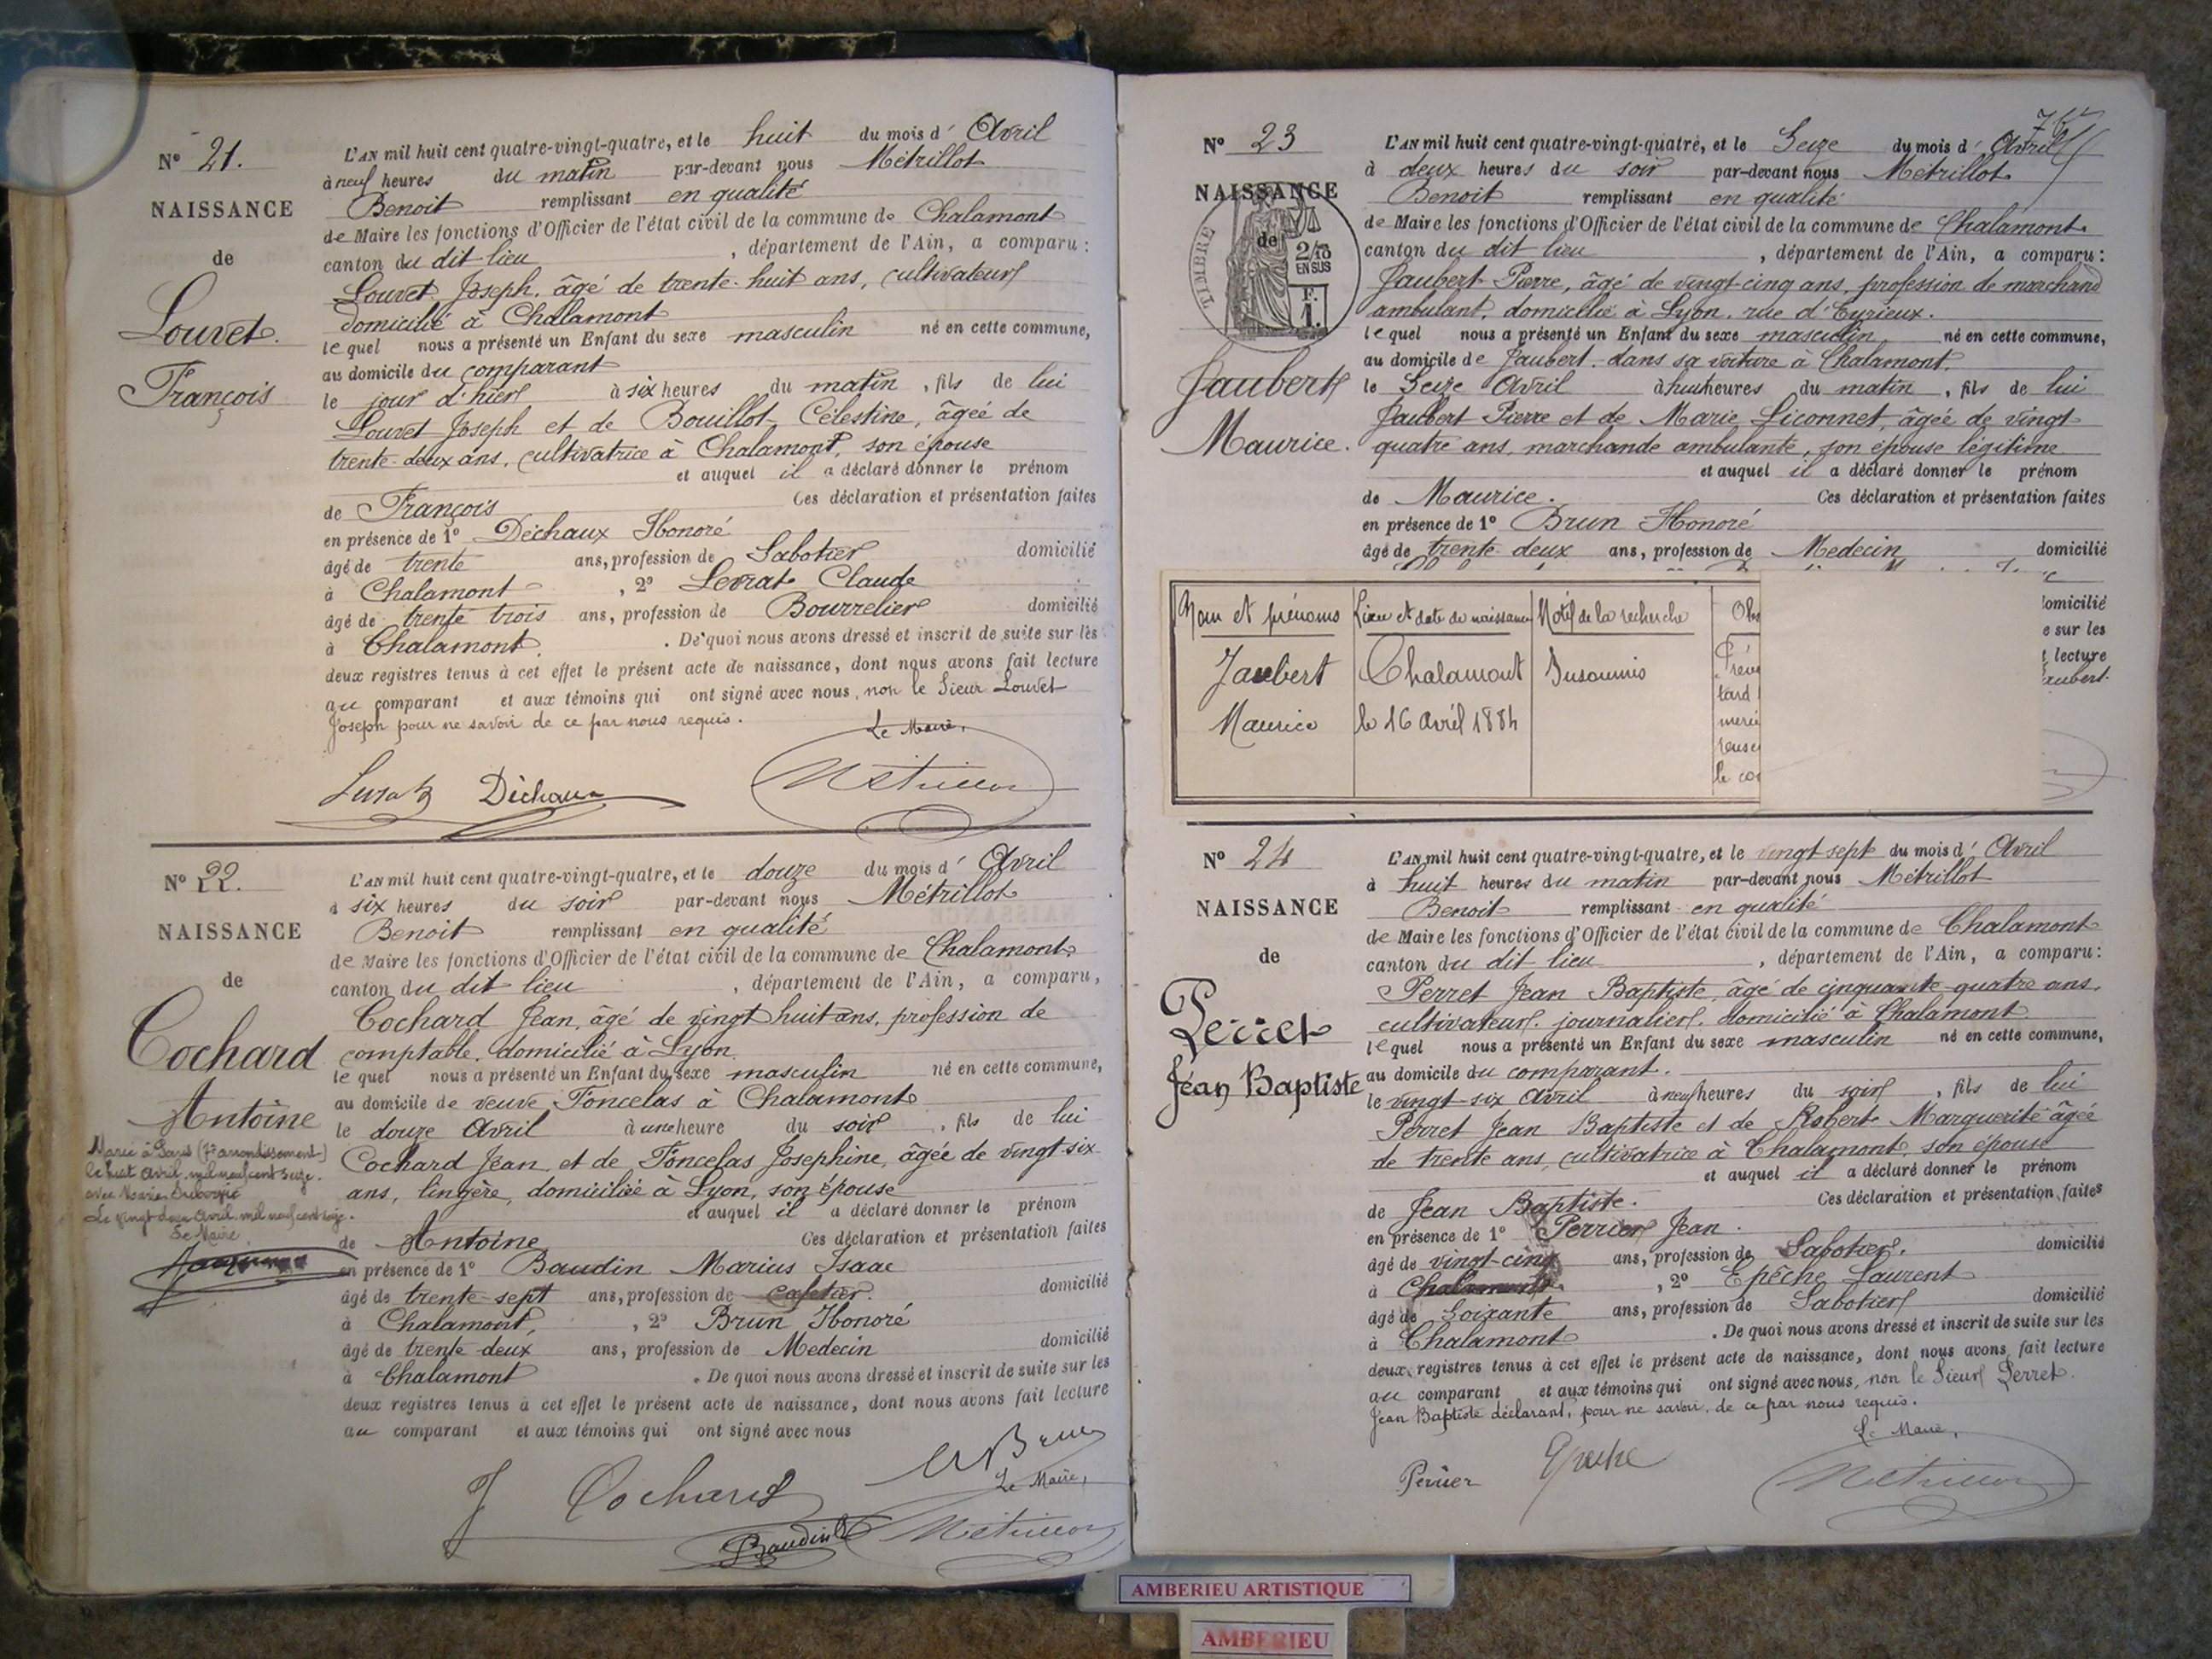 N° 21.
NAISSANCE
de
Louvet
François
L'AN mil huit cent quatre-vingt-quatre, et le huit du mois d' Avril
à neuf heures du matin par-devant nous Métrillot
Benoit remplissant en qualité
de Maire les fonctions d'Officier de l'état civil de la commune de Chalamont
canton du dit lieu , département de l'Ain, a comparu :
Louvet Joseph, âgé de trente-huit ans, cultivateur
domicilié à Chalamont
lequel nous a présenté un Enfant du sexe masculin né en cette commune,
au domicile du comparant
le jour d'hier à six heures du matin , fils de lui
Louvet Joseph et de Bouillot Célestine, âgée de
trente-deux ans, cultivatrice à Chalamont, son épouse
et auquel il a déclaré donner le prénom
de François Ces déclaration et présentation faites
en présence de 1° Déchaux Honoré
âgé de trente ans, profession de Sabotier domicilié
à Chalamont , 2° Levrat Claude
âgé de trente trois ans, profession de Bourrelier domicilié
à Chalamont . De quoi nous avons dressé et inscrit de suite sur les
deux registres tenus à cet effet le présent acte de naissance, dont nous avons fait lecture
au comparant et aux témoins qui ont signé avec nous, non le Sieur Louvet
Joseph pour ne savoir de ce par nous requis.
Le Maire,
Déchaux Métrillot
N° 22.
NAISSANCE
de
Cochard
Antoine
Marié à Paris (7e arrondissement)
le huit Avril mil neuf cent seize
avec
Le vingt deux Avril mil neuf cent seize.
Le Maire
L'AN mil huit cent quatre-vingt-quatre, et le douze du mois d' Avril
à six heures du soir par-devant nous Métrillot
Benoit remplissant en qualité
de Maire les fonctions d'Officier de l'état civil de la commune de Chalamont
canton du dit lieu , département de l'Ain, a comparu,
Cochard Jean, âgé de vingt huit ans, profession de
comptable, domicilié à Lyon
lequel nous a présenté un Enfant du sexe masculin né en cette commune,
au domicile de veuve Foncelas à Chalamont
le douze Avril à une heure du soir , fils de lui
Cochard Jean et de Foncelas Josephine, âgée de vingt-six
ans, lingère, domiciliée à Lyon, son épouse
et auquel il a déclaré donner le prénom
de Antoine Ces déclaration et présentation faites
en présence de 1° Baudin Marius Isaac
âgé de trente-sept ans, profession de cafetier domicilié
à Chalamont, , 2° Brun Honoré
âgé de trente-deux ans, profession de Medecin domicilié
à Chalamont . De quoi nous avons dressé et inscrit de suite sur les
deux registres tenus à cet effet le présent acte de naissance, dont nous avons fait lecture
au comparant et aux témoins qui ont signé avec nous
J Cochard
Le Maire,
Baudin Métrillot
N° 23
NAISSANCE
de
TIMBRE
2/10
EN SUS
F.
1.
Jaubert
Maurice.
L'AN mil huit cent quatre-vingt-quatre, et le Seize du mois d' Avril
à deux heures du soir par-devant nous Métrillot
Benoit remplissant en qualité
de Maire les fonctions d'Officier de l'état civil de la commune de Chalamont
canton du dit lieu , département de l'Ain, a comparu :
Jaubert Pierre, âgé de vingt-cinq ans, profession de marchand
ambulant, domicilié à Lyon, rue d'Eyrieux.
lequel nous a présenté un Enfant du sexe masculin né en cette commune,
au domicile de Jaubert dans sa voiture à Chalamont
le Seize Avril à huit heures du matin , fils de lui
Jaubert Pierre et de Marie Liconnet, âgée de vingt-
quatre ans, marchande ambulante, son épouse légitime
et auquel il a déclaré donner le prénom
de Maurice. Ces déclaration et présentation faites
en présence de 1° Brun Honoré
âgé de trente-deux ans, profession de Medecin domicilié
Nom et prénoms Lieu et date de naissance Motif de la recherche
Jaubert Chalamont Insoumis
Maurice le 16 avril 1884
omicilié
e sur les
lecture
aubert.
N° 24
NAISSANCE
de
Perret
Jéan Baptiste
L'AN mil huit cent quatre-vingt-quatre, et le vingt sept du mois d' Avril
à huit heures du matin par-devant nous Métrillot
Benoit remplissant en qualité
de Maire les fonctions d'Officier de l'état civil de la commune de Chalamont
canton du dit lieu , département de l'Ain, a comparu :
Perret Jean Baptiste, âgé de cinquante-quatre ans,
cultivateur journalier, domicilié à Chalamont
lequel nous a présenté un Enfant du sexe masculin né en cette commune,
au domicile du comparant.
le vingt-six Avril à neuf heures du soir , fils de lui
Perret Jean Baptiste et de Robert Marguerite âgée
de trente ans, cultivatrice à Chalamont, son épouse
et auquel il a déclaré donner le prénom
de Jean Baptiste. Ces déclaration et présentation faites
en présence de 1° Perrier Jean
âgé de vingt-cinq ans, profession de Sabotier domicilié
à Chalamont , 2° Epêche Laurent
âgé de Soixante ans, profession de Sabotier domicilié
à Chalamont . De quoi nous avons dressé et inscrit de suite sur les
deux registres tenus à cet effet le présent acte de naissance, dont nous avons fait lecture
au comparant et aux témoins qui ont signé avec nous, non le Sieur Perret
Jean Baptiste déclarant, pour ne savoir, de ce par nous requis.
Le Maire,
Perrier Epeche Métrillot
AMBERIEU ARTISTIQUE
AMBERIEU